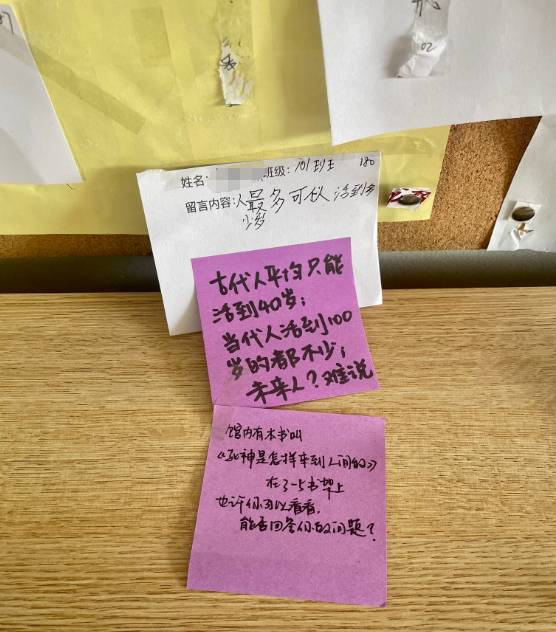 02
姓名: 班级:701班王 180
留言内容:人最多可以活到多
少岁
古代人平均只能
活到40岁;
当代人活到100
岁的都不少;
未来人?难说
馆内有本书叫
《死神是怎样来到人间的》
在3-5书架上
也许你可以看看,
能否回答你的问题?